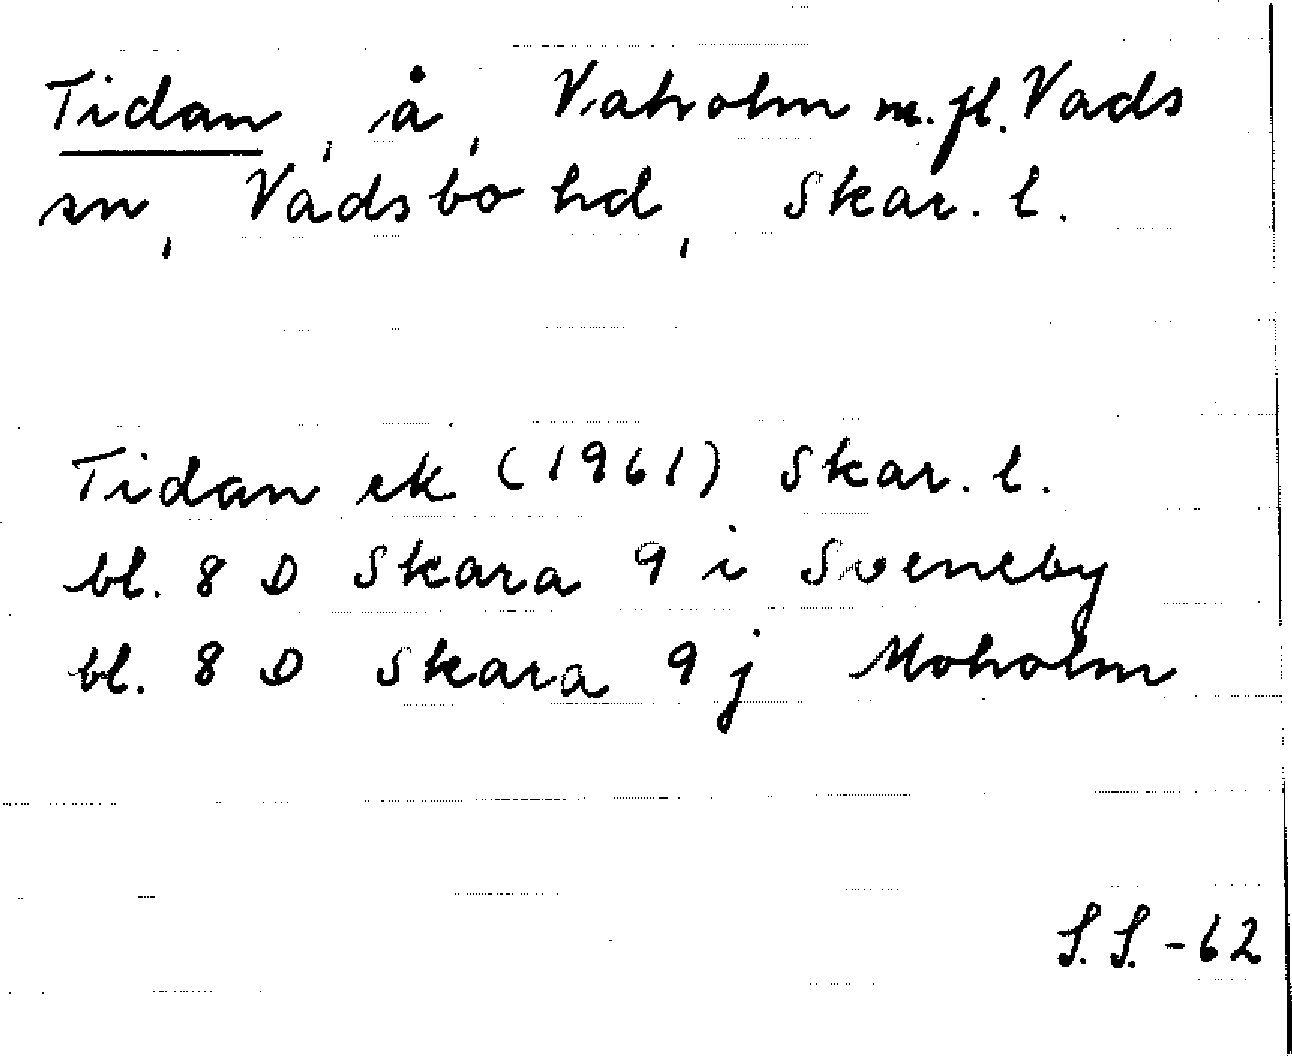 Tidan, å, Vaholm m.fl. Vads
sn, Vadsbo hd, Skar. l.
Tidan ek (1961) Skar. l.
bl. 8 D Skara 9 i Sveneby
bl. 8 D Skara 9 j Moholm
S.S. -62